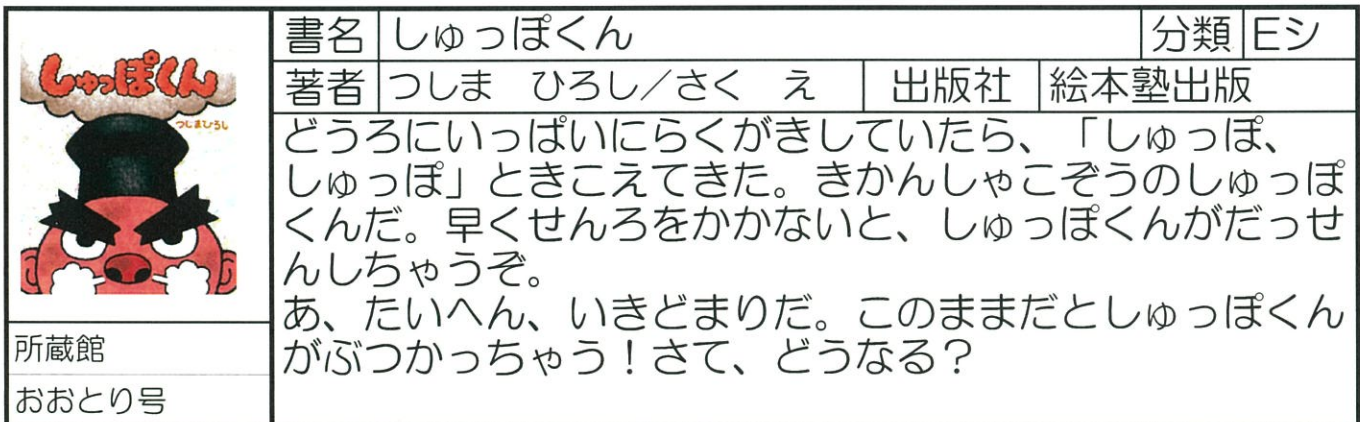 しゅっぽくん
つしまひろし
所蔵館
おおとり号
書名 しゅっぽくん 分類 Eシ
著者 つしま ひろし/さく え 出版社 絵本塾出版
どうろにいっぱいにらくがきしていたら、「しゅっぽ、
しゅっぽ」ときこえてきた。きかんしゃこぞうのしゅっぽ
くんだ。早くせんろをかかないと、しゅっぽくんがだっせ
んしちゃうぞ。
あ、たいへん、いきどまりだ。このままだとしゅっぽくん
がぶつかっちゃう!さて、どうなる?